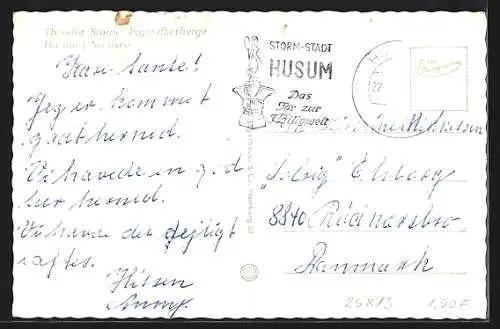 Theodor-Storm-Jugendherberge
Husum / Nordsee
Kære tante!
Jeg er kommet
godt herned.
Vi havde en god
tur herned.
Vi havde det dejligt
aftes.
Hilsen
STORM-STADT
HUSUM
Das
Tor zur
Halligwelt
"Solvig" Elsborg
8840 Rødkærsbro
Danmark
25X13 1,50 E